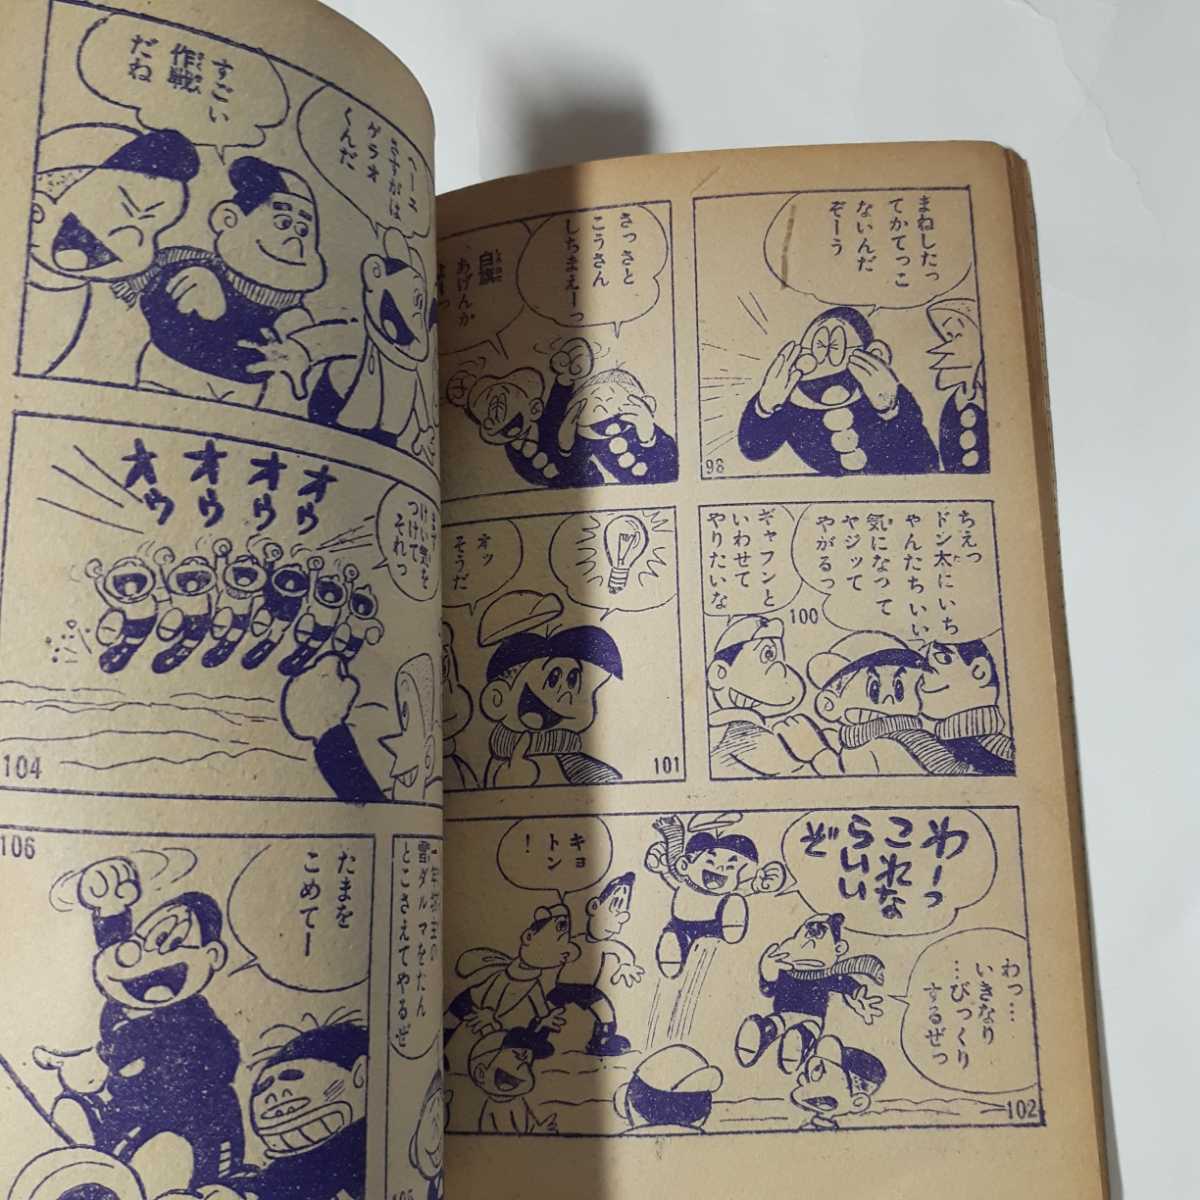 まねしたっ
てかてっこ
ないんだ
ぞーう
98
さっさと
こうさん
しちまえーっ
白旗
あげんか
ちえっ
ドン太にいち
ゃんたちいい
気になって
ヤジッて
やがるっ
100
ギャフンと
いわせて
やりたいな
オッ
そうだ
101
わーっ
これな
らいい
ぞ
キョ
トン
!
わっ…
いきなり
…びっくり
するぜっ
102
へーえ
さすがは
ゲラオ
くんだ
すごい
作戦
だね
まず
けい気を
つけて
それっ
オウ
オウ
オウ
オウ
104
雪ダルマをたん
とこさえてやるぜ
105
たまを
こめてー
106